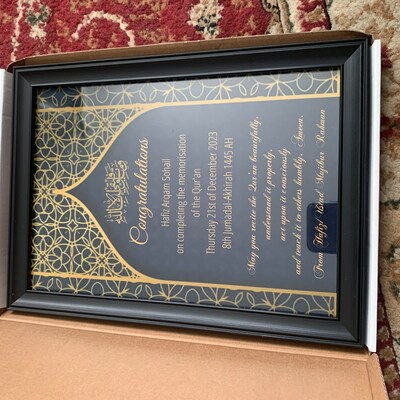 Congratulations
Hafiz Arqam Sohail
on completing the memorisation
of the Qur'an
Thursday 21st of December 2023
8th Jumadal-Akhirah 1445 AH
May you recite the Qur'an beautifully,
understand it properly,
act upon it consciously
and teach it to others humbly. Ameen.
From Hafiz Ubaid Mazhar Rahman